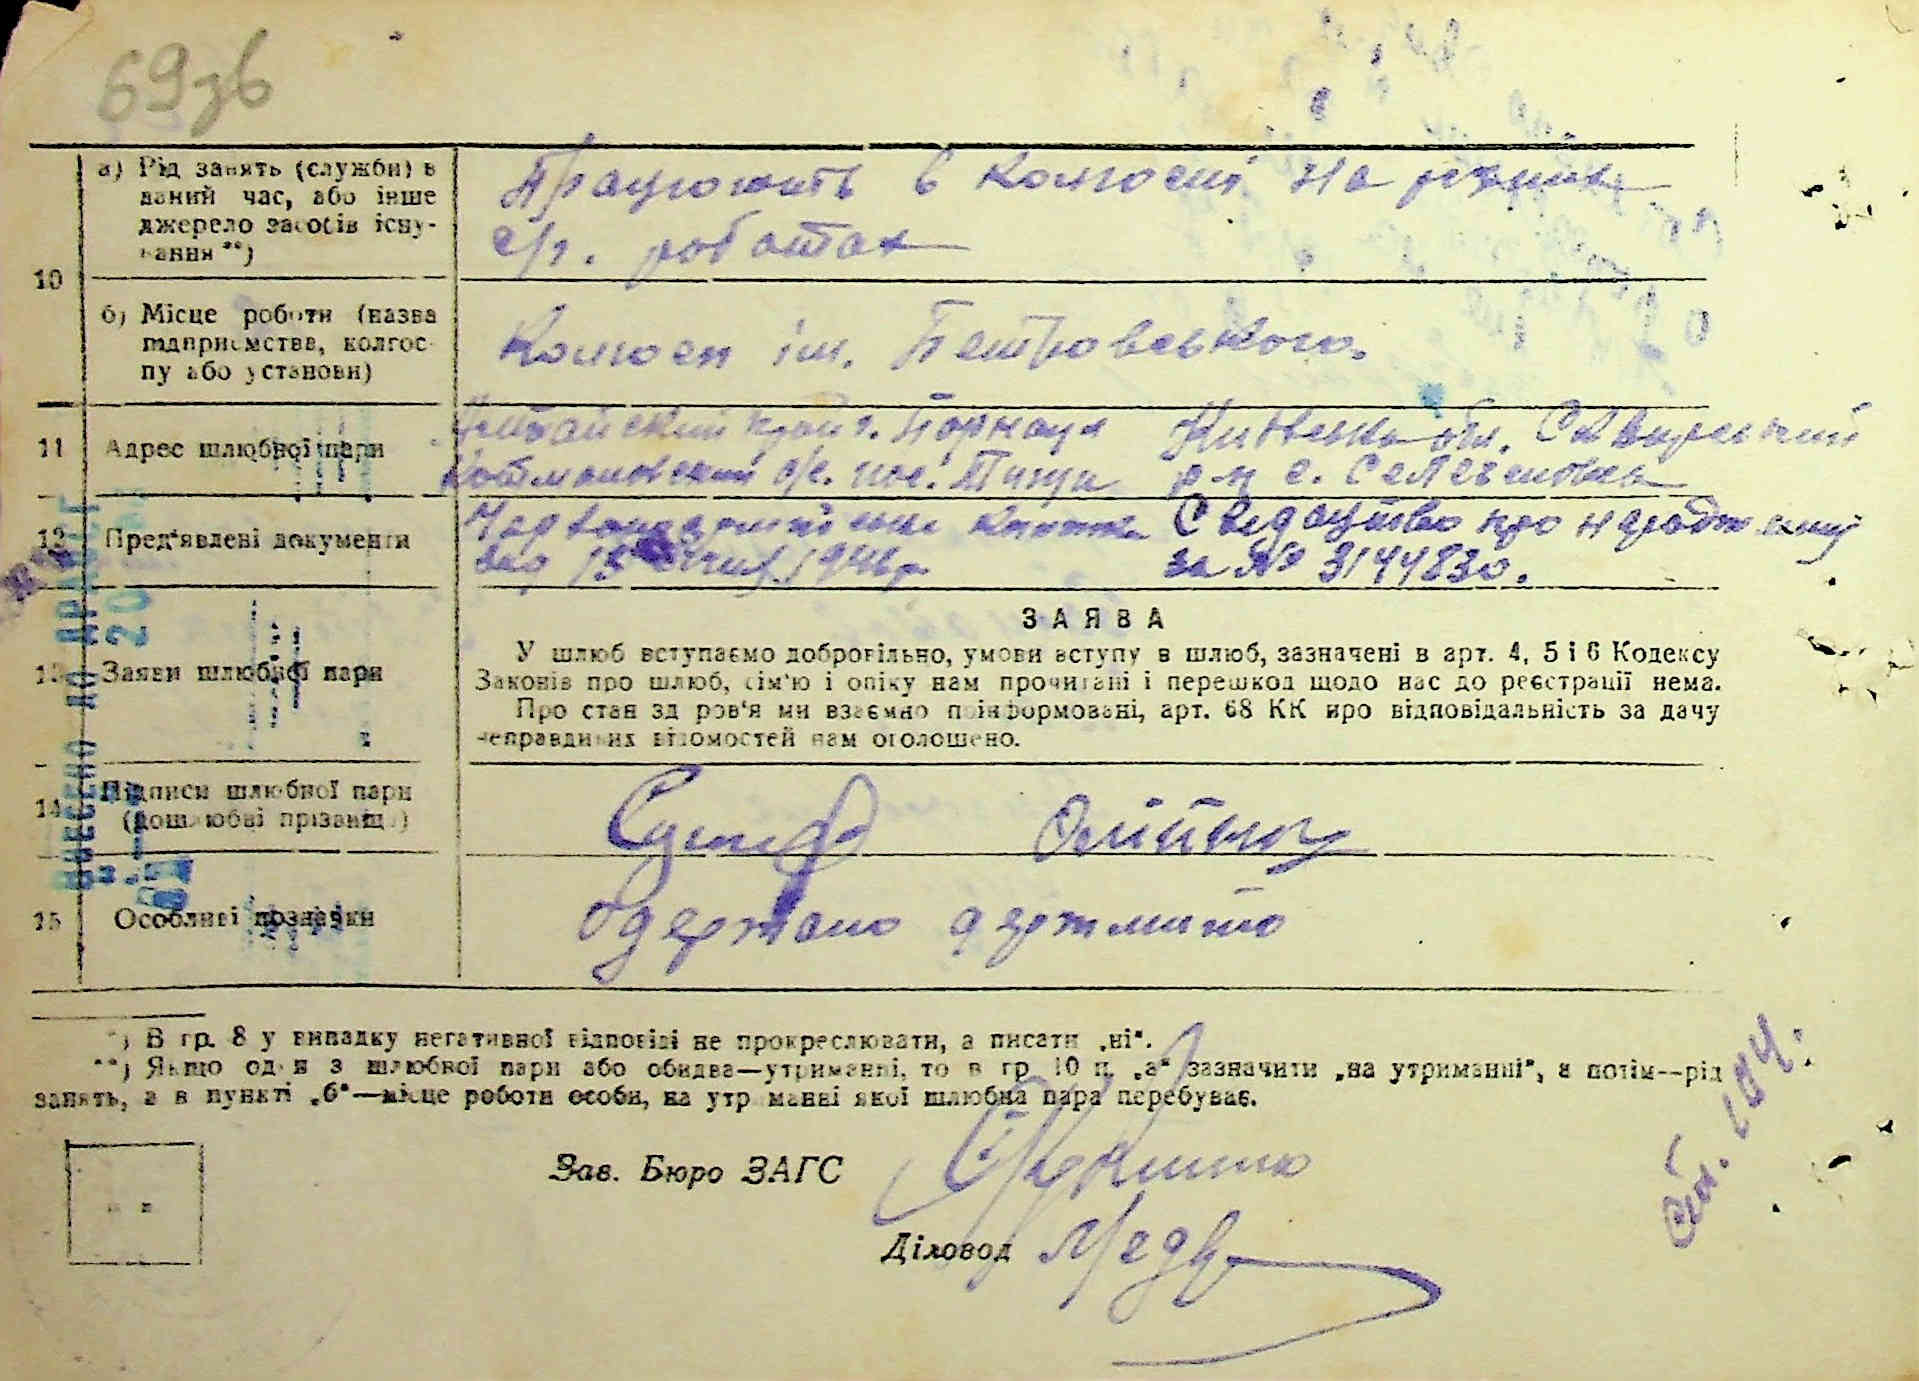 69зв
а) Рід занять (служби) в
даний час, або інше
джерело засобів існу-
вання **)
Працюють в колгоспі на різних
с/г. роботах
10
б) Місце роботи (назва
підприємства, колгос-
пу або установи)
Колгосп ім. Петровського.
11 Адрес шлюбної пари
Алтайский край г.
с/с. пос.
Київська обл. Сквирський
р-н с. Селезенівка
12 Пред'явлені документи
книжка
від 15 1946р.
Свідоцтво про народження
за № 3144830.
13 Заяви шлюбної пари
ЗАЯВА
У шлюб вступаємо добровільно, умови вступу в шлюб, зазначені в арт. 4, 5 і 6 Кодексу
Законів про шлюб, сім'ю і опіку нам прочитані і перешкод щодо нас до реєстрації нема.
Про стан здоров'я ми взаємно поінформовані, арт. 68 КК про відповідальність за дачу
неправдивих відомостей нам оголошено.
14 Підписи шлюбної пари
(дошлюбні прізвища)
Олійник
15 Особливі позначки
Одержано держмито
*) В гр. 8 у випадку негативної відповіді не прокреслювати, а писати „ні“.
**) Якщо один з шлюбної пари або обидва—утриманні, то в гр. 10 п. „а“ зазначити „на утриманні“, а потім—рід
занять, а в пункті „б“—місце роботи особи, на утриманні якої шлюбна пара перебуває.
Зав. Бюро ЗАГС
Діловод